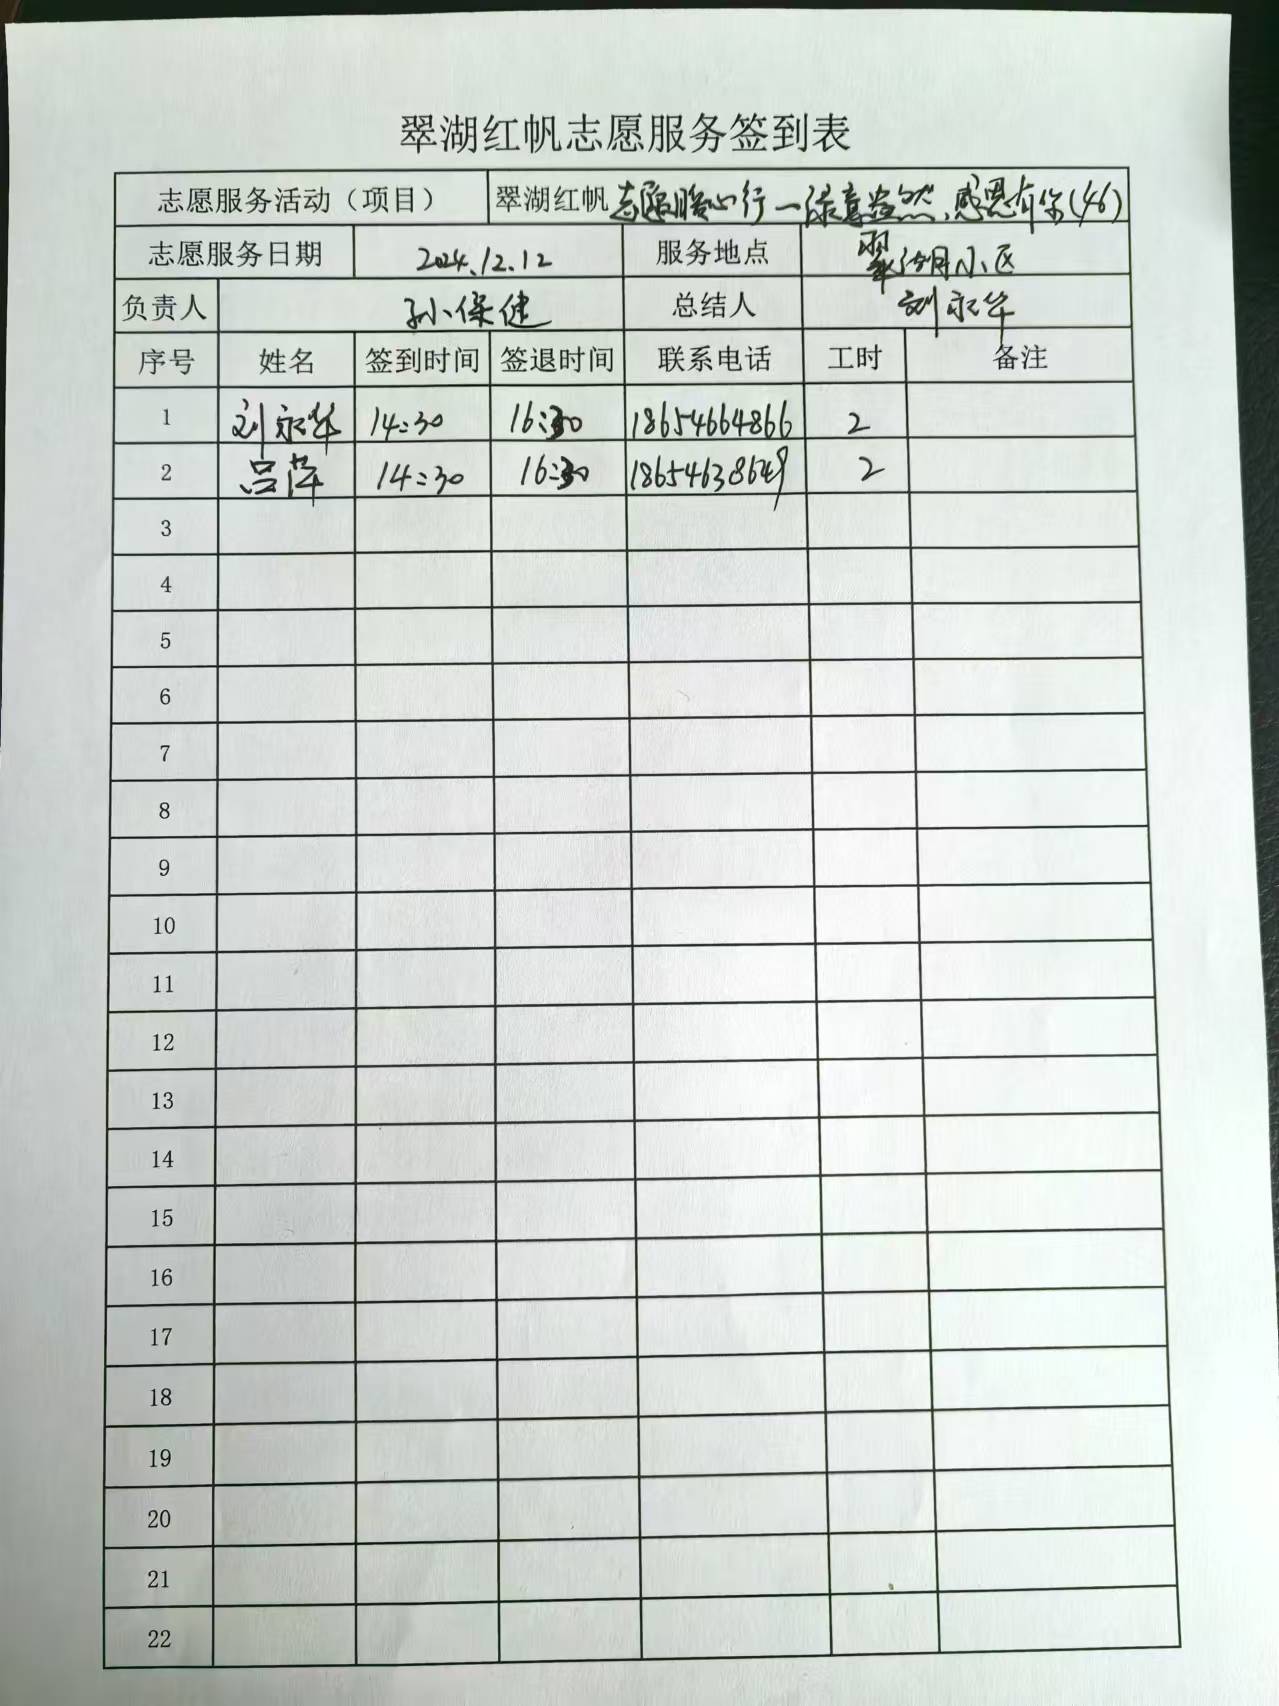 翠湖红帆志愿服务签到表
志愿服务活动（项目） 翠湖红帆 志愿暖心行一绿意盎然,感恩有你(46)
志愿服务日期 2024.12.12 服务地点 翠湖小区
负责人 孙保健 总结人 刘永华
序号 姓名 签到时间 签退时间 联系电话 工时 备注
1 刘永华 14:30 16:30 18654664866 2
2 吕萍 14:30 16:30 18654638649 2
3
4
5
6
7
8
9
10
11
12
13
14
15
16
17
18
19
20
21
22